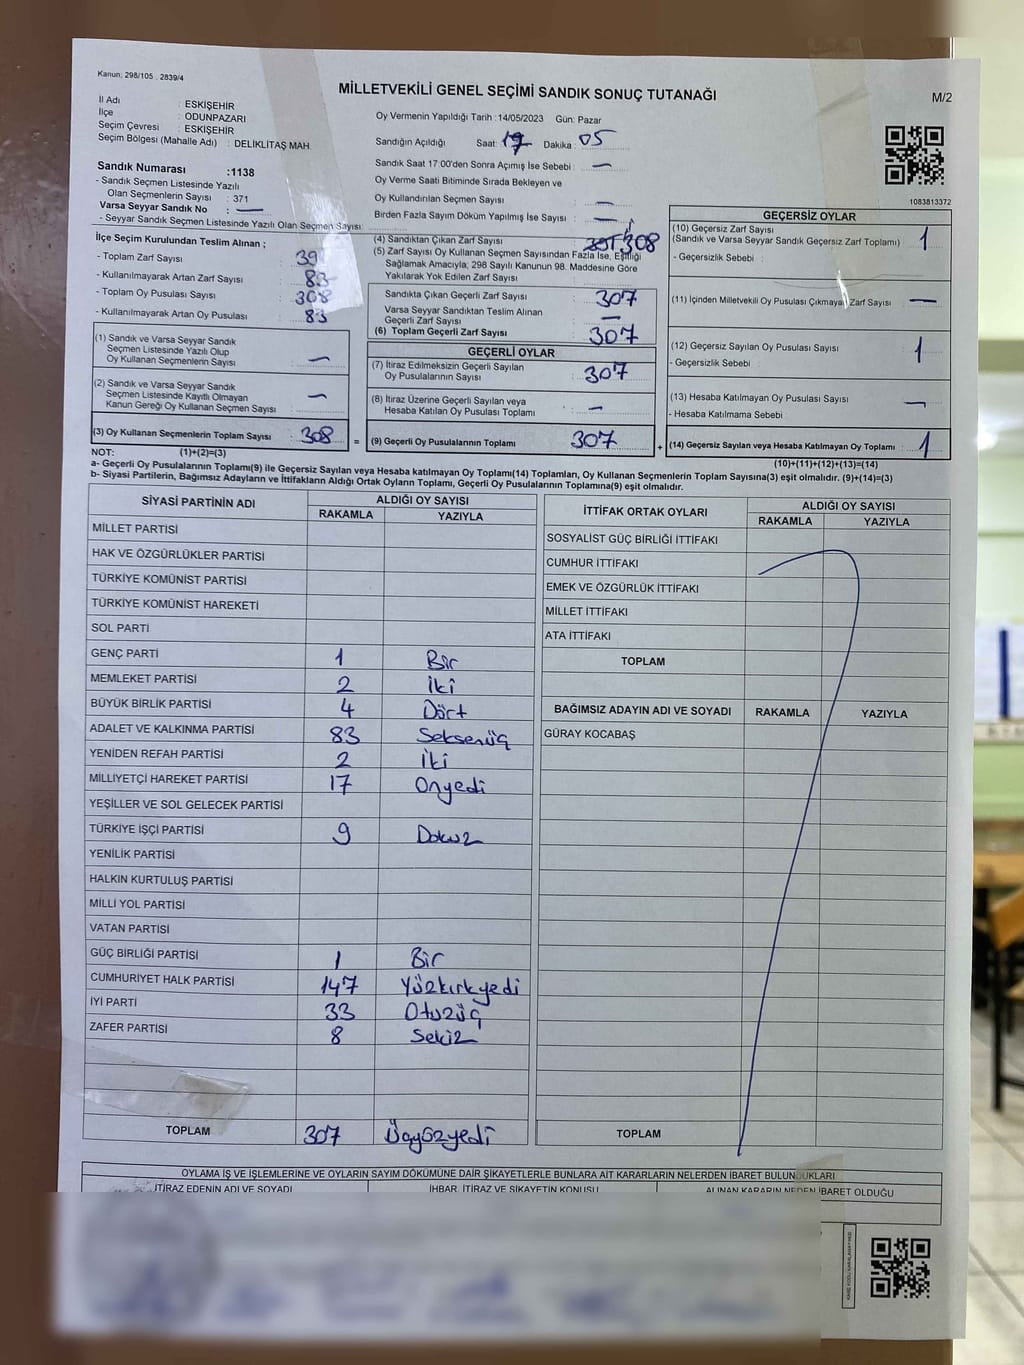 Kanun: 298/105 . 2839/4
MİLLETVEKİLİ GENEL SEÇİMİ SANDIK SONUÇ TUTANAĞI
M/2
İl Adı : ESKİŞEHİR
İlçe : ODUNPAZARI
Seçim Çevresi : ESKİŞEHİR
Seçim Bölgesi (Mahalle Adı) : DELİKLİTAŞ MAH.
Oy Vermenin Yapıldığı Tarih : 14/05/2023 Gün: Pazar
Sandığın Açıldığı Saat: 17 Dakika : 05
Sandık Saat 17:00'den Sonra Açımış İse Sebebi : —
Oy Verme Saati Bitiminde Sırada Bekleyen ve
Oy Kullandırılan Seçmen Sayısı : —
Birden Fazla Sayım Döküm Yapılmış İse Sayısı : —
1083813372
Sandık Numarası :1138
- Sandık Seçmen Listesinde Yazılı
Olan Seçmenlerin Sayısı : 371
Varsa Seyyar Sandık No : —
- Seyyar Sandık Seçmen Listesinde Yazılı Olan Seçmen Sayısı:
İlçe Seçim Kurulundan Teslim Alınan ;
- Toplam Zarf Sayısı : 39
- Kullanılmayarak Artan Zarf Sayısı : 83
- Toplam Oy Pusulası Sayısı : 308
- Kullanılmayarak Artan Oy Pusulası : 83
(1) Sandık ve Varsa Seyyar Sandık
Seçmen Listesinde Yazılı Olup
Oy Kullanan Seçmenlerin Sayısı : —
(2) Sandık ve Varsa Seyyar Sandık
Seçmen Listesinde Kayıtlı Olmayan
Kanun Gereği Oy Kullanan Seçmen Sayısı : —
(3) Oy Kullanan Seçmenlerin Toplam Sayısı : 308
(4) Sandıktan Çıkan Zarf Sayısı : 308
(5) Zarf Sayısı Oy Kullanan Seçmen Sayısından Fazla İse, Eşitliği
Sağlamak Amacıyla, 298 Sayılı Kanunun 98. Maddesine Göre
Yakılarak Yok Edilen Zarf Sayısı :
Sandıkta Çıkan Geçerli Zarf Sayısı : 307
Varsa Seyyar Sandıktan Teslim Alınan
Geçerli Zarf Sayısı : —
(6) Toplam Geçerli Zarf Sayısı : 307
GEÇERLİ OYLAR
(7) İtiraz Edilmeksizin Geçerli Sayılan
Oy Pusulalarının Sayısı : 307
(8) İtiraz Üzerine Geçerli Sayılan veya
Hesaba Katılan Oy Pusulası Toplamı : —
= (9) Geçerli Oy Pusulalarının Toplamı : 307
GEÇERSİZ OYLAR
(10) Geçersiz Zarf Sayısı
(Sandık ve Varsa Seyyar Sandık Geçersiz Zarf Toplamı) : 1
- Geçersizlik Sebebi :
(11) İçinden Milletvekili Oy Pusulası Çıkmayan Zarf Sayısı : —
(12) Geçersiz Sayılan Oy Pusulası Sayısı : 1
- Geçersizlik Sebebi :
(13) Hesaba Katılmayan Oy Pusulası Sayısı : —
- Hesaba Katılmama Sebebi :
+ (14) Geçersiz Sayılan veya Hesaba Katılmayan Oy Toplamı : 1
NOT: (1)+(2)=(3)
(10)+(11)+(12)+(13)=(14)
a- Geçerli Oy Pusulalarının Toplamı(9) ile Geçersiz Sayılan veya Hesaba katılmayan Oy Toplamı(14) Toplamları, Oy Kullanan Seçmenlerin Toplam Sayısına(3) eşit olmalıdır. (9)+(14)=(3)
b- Siyasi Partilerin, Bağımsız Adayların ve İttifakların Aldığı Ortak Oyların Toplamı, Geçerli Oy Pusulalarının Toplamına(9) eşit olmalıdır.
SİYASİ PARTİNİN ADI ALDIĞI OY SAYISI
RAKAMLA YAZIYLA
MİLLET PARTİSİ
HAK VE ÖZGÜRLÜKLER PARTİSİ
TÜRKİYE KOMÜNİST PARTİSİ
TÜRKİYE KOMÜNİST HAREKETİ
SOL PARTİ
GENÇ PARTİ 1 Bir
MEMLEKET PARTİSİ 2 İki
BÜYÜK BİRLİK PARTİSİ 4 Dört
ADALET VE KALKINMA PARTİSİ 83 Seksenüç
YENİDEN REFAH PARTİSİ 2 İki
MİLLİYETÇİ HAREKET PARTİSİ 17 Onyedi
YEŞİLLER VE SOL GELECEK PARTİSİ
TÜRKİYE İŞÇİ PARTİSİ 9 Dokuz
YENİLİK PARTİSİ
HALKIN KURTULUŞ PARTİSİ
MİLLİ YOL PARTİSİ
VATAN PARTİSİ
GÜÇ BİRLİĞİ PARTİSİ 1 Bir
CUMHURİYET HALK PARTİSİ 147 Yüzkırkyedi
İYİ PARTİ 33 Otuzüç
ZAFER PARTİSİ 8 Sekiz
TOPLAM 307 Üçyüzyedi
İTTİFAK ORTAK OYLARI ALDIĞI OY SAYISI
RAKAMLA YAZIYLA
SOSYALİST GÜÇ BİRLİĞİ İTTİFAKI
CUMHUR İTTİFAKI
EMEK VE ÖZGÜRLÜK İTTİFAKI
MİLLET İTTİFAKI
ATA İTTİFAKI
TOPLAM
BAĞIMSIZ ADAYIN ADI VE SOYADI RAKAMLA YAZIYLA
GÜRAY KOCABAŞ
TOPLAM
OYLAMA İŞ VE İŞLEMLERİNE VE OYLARIN SAYIM DÖKÜMÜNE DAİR ŞİKAYETLERLE BUNLARA AİT KARARLARIN NELERDEN İBARET BULUNDUKLARI
İTİRAZ EDENİN ADI VE SOYADI İHBAR, İTİRAZ VE ŞİKAYETİN KONUSU ALINAN KARARIN NEDEN İBARET OLDUĞU